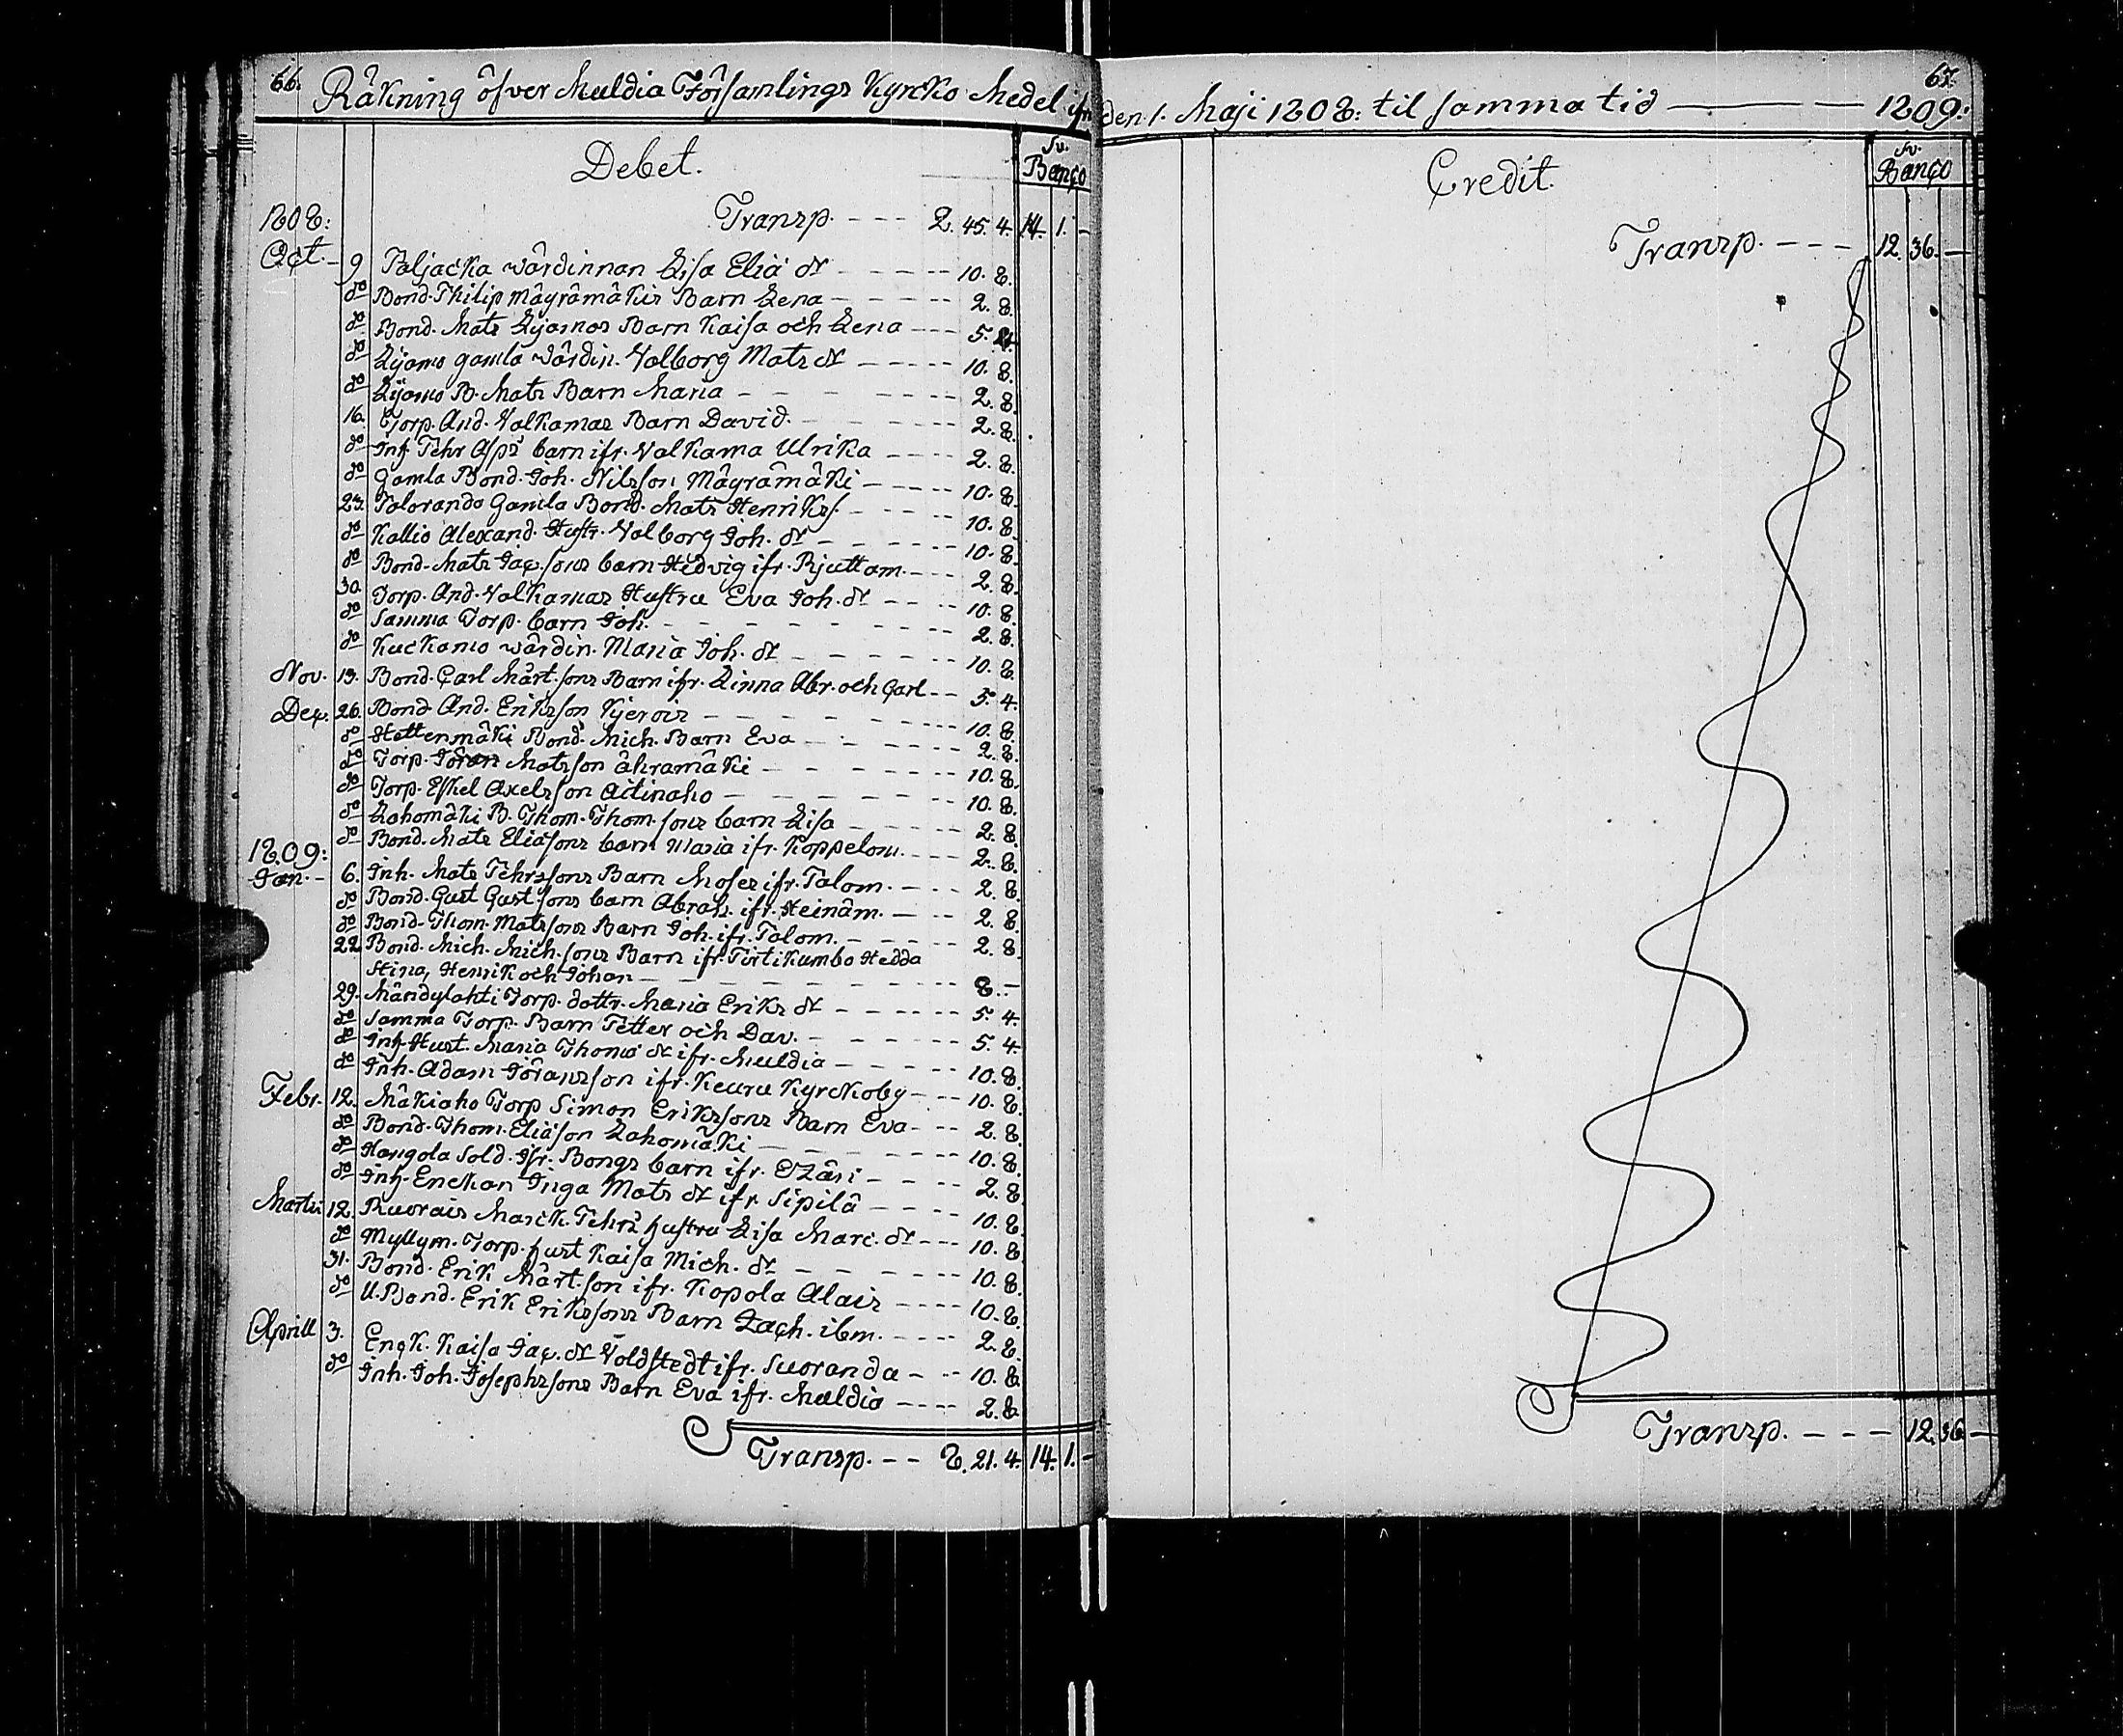 66.
Räkning öfver Muldia Församlings Kyrcko Medel ifr.
Debet.
Sv. Banco
1808: Transp. --- 2. 45. 4. 14. 1. -
Oct. 9 Paljacka wärdinnan Lisa Eliæ dr ----- 10. 8.
do Bond. Philip Mäyrämäkis Barn Lena ----- 2. 8.
do Bond. Mats Lyamos Barn Kaisa och Lena --- 5. 4.
do Lyamo gamla wärdin. Valborg Mats dr ----- 10. 8.
do Lyamo B. Mats Barn Maria ----- 2. 8.
16. Torp. And. Valkamas Barn David. ----- 2. 8.
do Inh. Pehr Asps barn ifr. Valkama Ulrika ---- 2. 8.
do Gamla Bond. Joh. Nilsson Mäyrämäki ----- 10. 8.
23. Talorando Gamla Bond. Mats Henrikss. ----- 10. 8.
do Kallio Alexand. Hustr. Valborg Joh. dr ----- 10. 8.
do Bond. Mats Jac.sons barn Hedvig ifr. Pjuttam. ---- 2. 8.
30. Torp. And. Valkamas Hustru Eva Joh. dr ---- 10. 8.
do Samma Torp. barn Joh. ----- 2. 8.
do Kuckamo wärdin. Maria Joh. dr ----- 10. 8.
Nov. 13. Bond. Carl Märt.sons Barn ifr. Linna Abr. och Carl -- 5. 4.
Dec. 26. Bond. And. Eriksson Kjerois ----- 10. 8.
do Hettenmäki Bond. Mich. Barn Eva ----- 2. 8.
do Torp. Göran Matsson Ähramäki ----- 10. 8.
do Torp. Eskel Axelsson Aitinaho ----- 10. 8.
do Lahomäki B. Thom. Thom.sons barn Lisa ----- 2. 8.
do Bond. Mats Eliæsons barn Maria ifr. Koppelom. ---- 2. 8.
1809:
Jan. - 6. Inh. Mats Pehrssons Barn Moses ifr. Talom. ---- 2. 8.
do Bond. Gust Gust.sons barn Abrah. ifr. Heinäm. --- 2. 8.
do Bond. Thom. Matssons Barn Joh. ifr. Talom. ----- 2. 8.
22. Bond. Mich. Mich.sons Barn ifr. Pirtikumbo Hedda
Stina, Henrik och Johan ----- 8. -
29. Mändylahti Torp. dottr. Maria Eriks dr ----- 5. 4.
do Samma Torp. Barn Petter och Dav. ----- 5. 4.
do Inh. Hust. Maria Thomæ dr ifr. Muldia ----- 10. 8.
do Inh. Adam Göransson ifr. Keuru Kyrckoby --- 10. 8.
Febr. 12. Mäkiaho Torp Simon Erikssons Barn Eva --- 2. 8.
do Bond. Thom. Eliæson Lahomäki ----- 10. 8.
do Hangola Sold. Ifr. Bongs barn ifr. Etzäri ---- 2. 8.
do Inh. Enckan Inga Mats dr ifr. Sipilä ---- 10. 8.
Martii 12. Ruorais Marck. Pehrs hustru Lisa Marc. dr --- 10. 8.
do Myllym. Torp. hust Kaisa Mich. dr ----- 10. 8.
31. Bond. Erik Märt.son ifr. Kopola Alais ---- 10. 8.
do U. Bond. Erik Erikssons Barn Zach. ibm. ----- 2. 8.
Aprill 3. Enck. Kaisa Jac. dr Voldstedt ifr. Suoranda --- 10. 8.
do Inh. Joh. Josephssons Barn Eva ifr. Muldia ---- 2. 8.
Transp. -- 8. 21. 4. 14. 1. -
67.
den 1. Maji 1808: til samma tid 1809:
Credit.
Sv. Banco
Transp. --- 12. 36. -
Transp. --- 12. 36. -